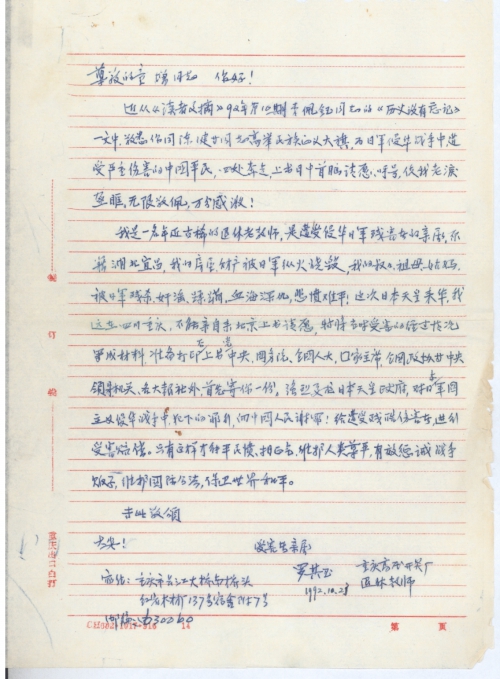 尊敬的童增同志 你好！
近从《读者文摘》92年第10期李佩钰同志的《历史没有忘记》
一文中，敬悉你同陈健同志高举民族正义大旗，为日军侵华战争中遭
受严重伤害的中国平民，四处奔走，上书日中首脑请愿、呼号，使我老泪
无限敬佩，万分感激！
我是一名年近古稀的退休老教师，是遭受侵华日军残害女的亲属，原
籍湖北宜昌，我的房屋财产被日军纵火烧毁，我的叔父、祖母、姑母
被日军残杀、奸淫、蹂躏，血海深仇，悲愤难平！这次日本天皇来华，我
远在四川重庆，不能亲自来北京上书请愿，特将当时受害的经过情况
写成材料，准备打印上书中央、国务院、全国人大、国家主席、全国政协等中央
领导机关、各大报社外首先寄你一份，请烈日本天皇政府，对日军国
主义侵华战争中，犯下的罪行，向中国人民谢罪！给遭受残踢伤害者，进行
受害赔偿。只有这样才能平民愤，相正，维护人类尊严，有效惩诫战争
贩子，维护国际公法，保卫世界和平。
专此敬颂
大安！ 受害者亲属
罗 重庆 开关厂
退休教师
寄信：重庆市长江大桥南桥头 1992.10.28
137号宿舍附7号
邮编：630060
CH302 1017-316 14
第 页
装
订
线